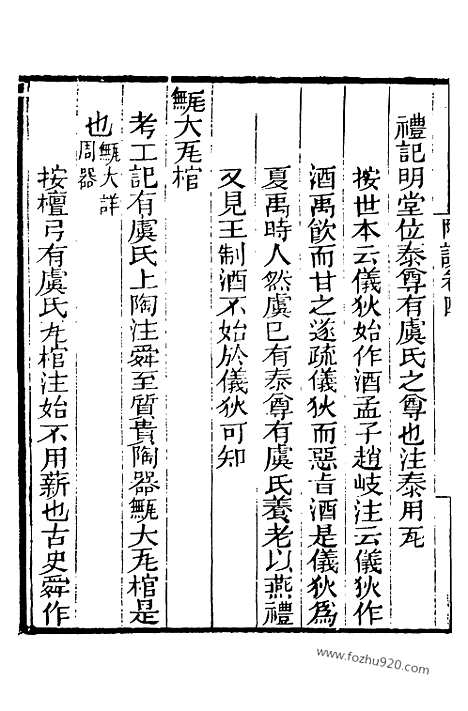 禮記明堂位泰尊有虞氏之尊也注泰用瓦
按世本云儀狄始作酒孟子趙岐注云儀狄作
酒禹飲而甘之遂疏儀狄而惡旨酒是儀狄爲
夏禹時人然虞已有泰尊有虞氏養老以燕禮
又見王制酒不始於儀狄可知
甒大瓦棺
考工記有虞氏上陶注舜至質貴陶器甒大瓦棺是
也甒大詳周器
按檀弓有虞氏瓦棺注始不用薪也古史舜作
www.fozhu920.com